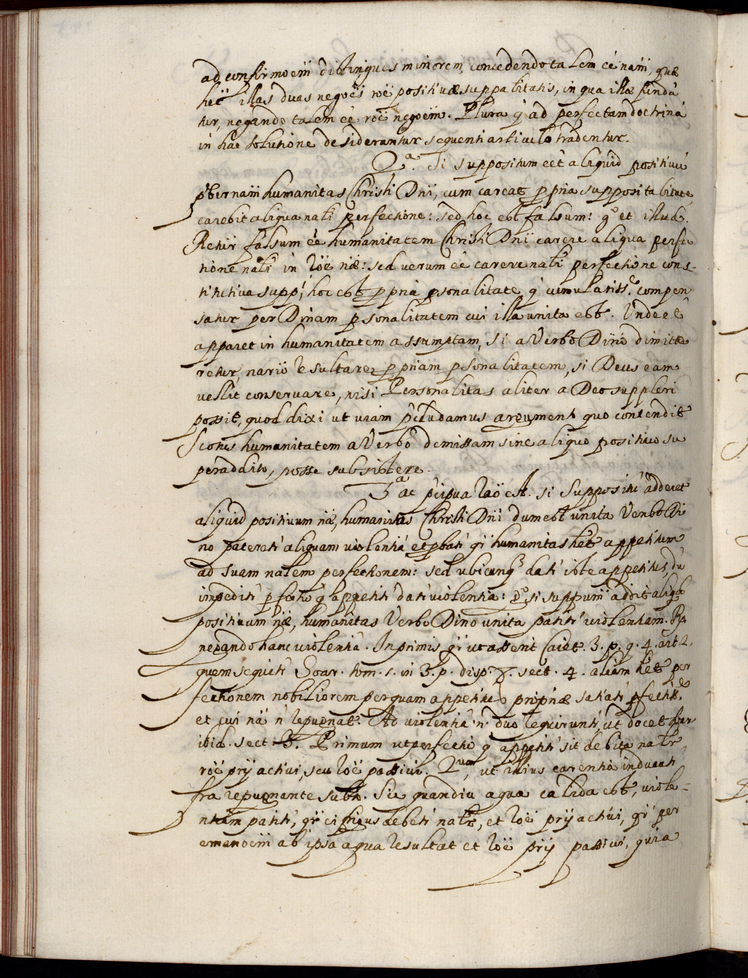 ad confirmoẽm distingues minorem, concedendo talem ẽe nam̃, quæ
hẽt illas duas negoẽs rõe positivæ suppalitatis, in qua illæ fundã
tur, negando talem ẽe rõe negoẽm. Plura q̃ ad perfectam doctrinã
in hac solutione desiderantur sequenti articulo tradentur.
2ª. Si suppositum eet aliquid positivũ
humanitas Christi Dñi, cum careat pp̃ria suppositalitate
carebit aliqua nali perfectione: sed hoc est falsum: gº et illud.
falsum ẽe humanitatem Christi Dñi carere aliqua perfe
tione nali in rõe næ: sed verum ẽe carere nali perfectione cons-
titutiva suppi, hoc est pp̃ria psonalitate q̃ cumulatiss.e compen
satur per Dinam psonalitatem cui illa unita est. Unde
apparet in humanitatem assumptam, si a Verbo Dino dimitte
retur, resultare pp̃riam psonalitatem, si Deus eam
vellit conservare, nisi Personalitas aliter a Deo suppleri
possit, quod dixi ut viam p̃cludamus argument quo contendit
Scotus humanitatem a Verbo dimissam sine aliquo positivo su
peraddito, posse subsistere.
3ª ac p̃cipua raõ est. Si Suppositũ adderet
aliquid positivum næ, humanitas Christi Dñi dum est unita Verbo Di
no pateret aliquam violentiã et pbat qr̃ humanitas hẽt appetitum
ad suam nalem perfectionem: sed ubicunq̃ dat iste appetitus, dũ
impedit pfectio q̃ appetit dat violentia: gº si suppum addit aliqd
positivum næ, humanitas Verbo Dino unita patit violentiam.
negando hanc violentiã. Inprimis qr̃ ut asserit Caiet. 3. p. q. 4. art. 2.
quem sequit Soar. tom. 1. in 3. p. disp. 8. sect. 4. aliam hẽt per
fectionem nobiliorem per quam appetitus propriæ satiat pfectiõe
et cui nã ñ repugnat. Ad violentiã ñ duo requirunt, ut docet Soar
ibid. sect. 3. Primum ut perfectio q̃ appetit sit debita nalr̃
rõe prij activi, seu rõe passivi. 2um, ut illius carentia inducat
fra repugnante subto. Sic quandiu aqua calida est, viole-
ntiam patit, qr̃ ei frigus debet nalr̃, et rõe prij activi, qr̃ per
emanoẽm ab ipsa aqua resultat et rõe prij passivi, quia